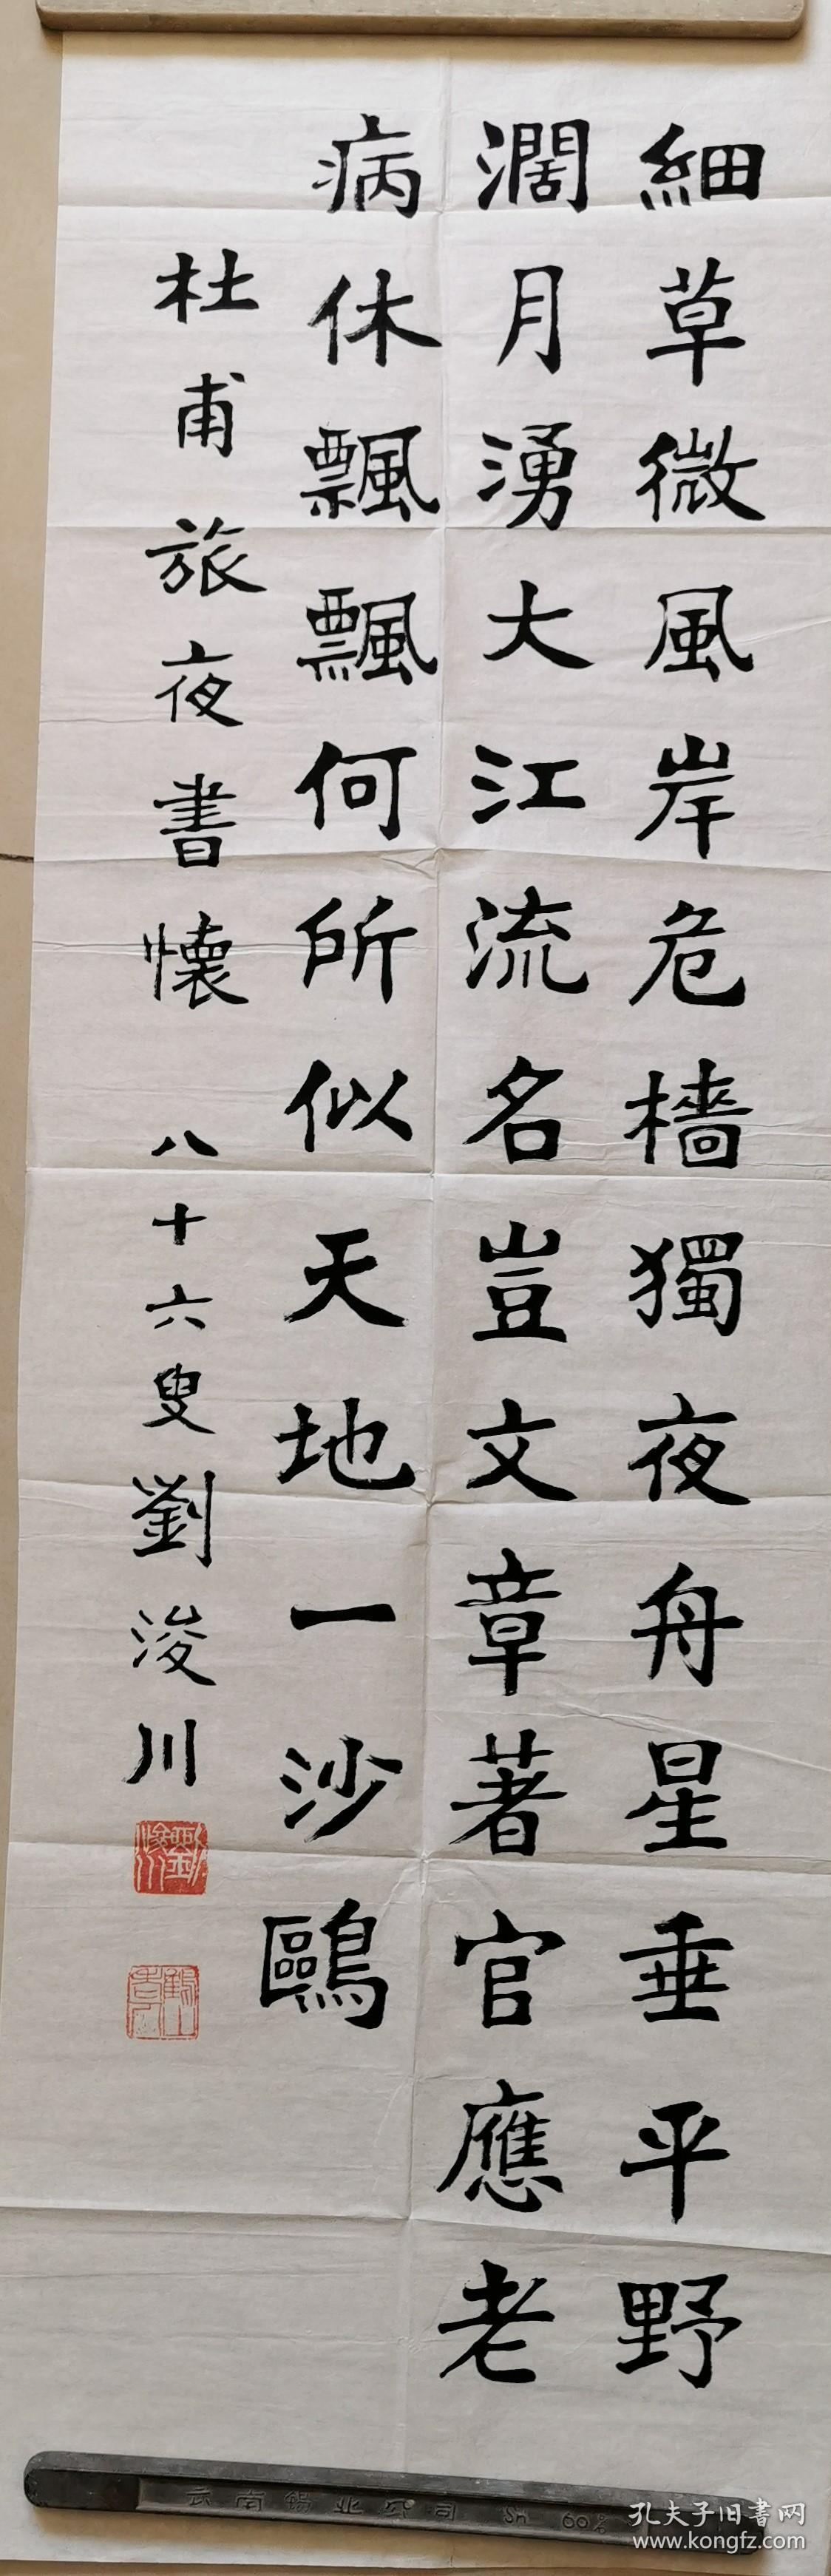 細草微風岸危檣獨夜舟星垂平野
濶月湧大江流名豈文章著官應老
病休飄飄何所似天地一沙鷗
杜甫旅夜書懷 八十六叟劉浚川
云南锡业公司 Sn 60%
孔夫子旧書网
www.kongfz.com